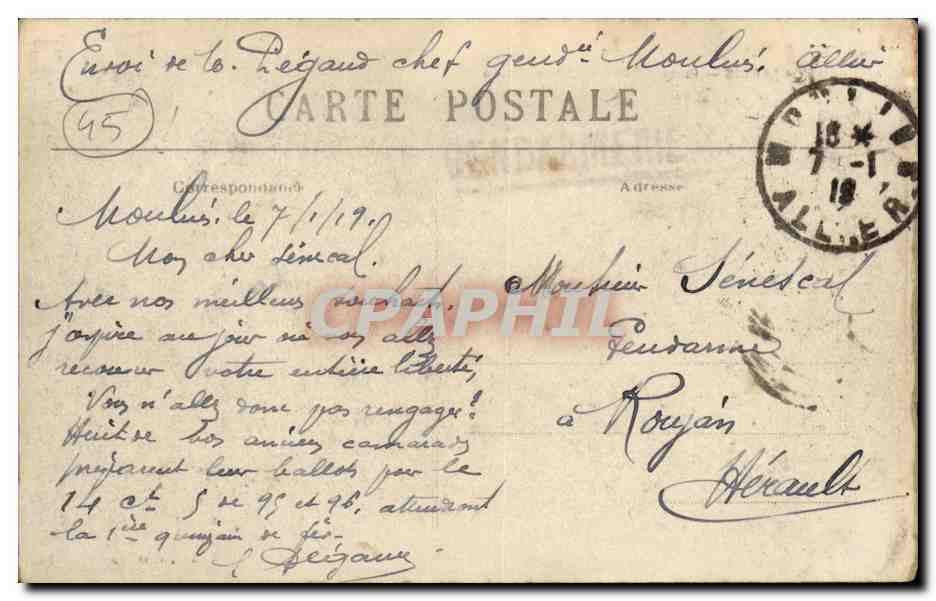 Envoi de Mr. Dégaud chef gendie Moulins. Allier
45
CARTE POSTALE
GENDARMERIE
Correspondance
Adresse
MOULINS
18 *
7 - 1
19
ALLIER
Moulins. le 7/1/19.
Mon cher Sénescal.
Avec nos meilleurs souhaits.
j'aspire au jour où vous allez
recouvrer votre entière liberté,
Vous n'allez donc pas rengager?
Huit de vos anciens camarades
préparent leur ballots pour le
14 ct 5 de 95 et 96. attendent
la 1ère quinzain de fév-
Monsieur Sénescal
Gendarme
à Roujan
Hérault
CPAPHIL